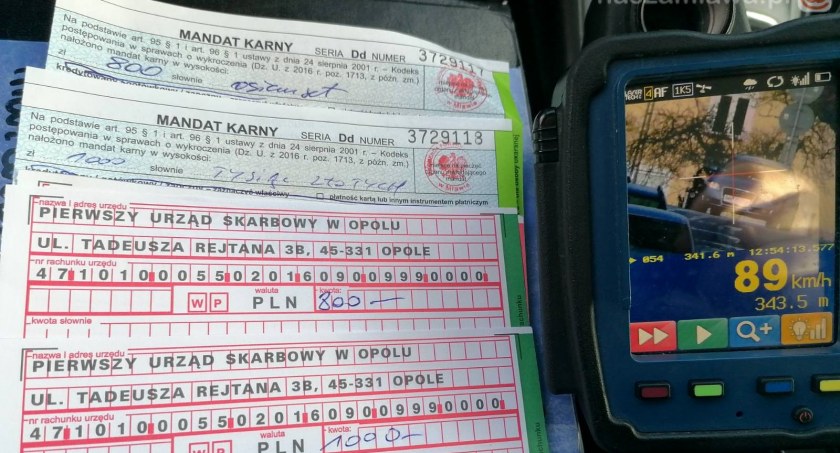 MANDAT KARNY SERIA Dd NUMER 3729117
Na podstawie art. 95 § 1 i art. 96 § 1 ustawy z dnia 24 sierpnia 2001 r. – Kodeks
postępowania w sprawach o wykroczenia (Dz. U. z 2016 r. poz. 1713, z późn. zm.)
nałożono mandat karny w wysokości:
zł 800 słownie osiemset
MANDAT KARNY SERIA Dd NUMER 3729118
Na podstawie art. 95 § 1 i art. 96 § 1 ustawy z dnia 24 sierpnia 2001 r. – Kodeks
postępowania w sprawach o wykroczenia (Dz. U. z 2016 r. poz. 1713, z późn. zm.)
nałożono mandat karny w wysokości:
zł 1000 słownie TYSIĄC ZŁOTYCH
płatność kartą lub innym instrumentem płatniczym
nazwa i adres urzędu
PIERWSZY URZĄD SKARBOWY W OPOLU
UL. TADEUSZA REJTANA 3B, 45-331 OPOLE
nr rachunku urzędu
47101000550201609099990000
waluta kwota:
WP PLN 800-
kwota słownie
nazwa i adres urzędu
PIERWSZY URZĄD SKARBOWY W OPOLU
UL. TADEUSZA REJTANA 3B, 45-331 OPOLE
nr rachunku urzędu
47101000550201609099990000
waluta kwota:
WP PLN 1000-
naszamlawa.pl
AF 1K5
054 341.6 m 12:54:13.577
89 km/h
343.5 m